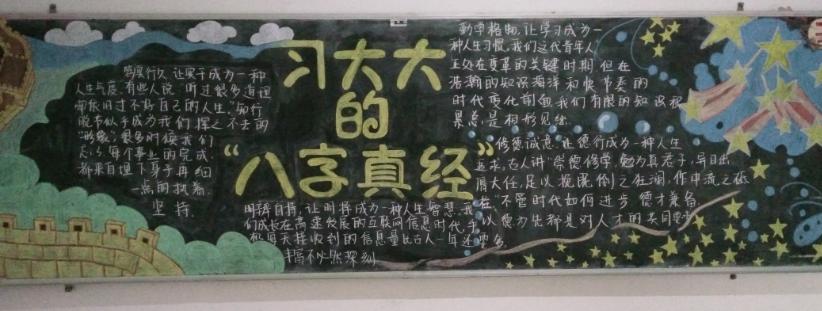 习大大
的
“八字真经”
笃厚行久,让实干成为一种
人生气质 有些人说 听过很多道理
却依旧过不好自己的人生“知行
脱节似乎成为我们挥之不去的
很多时候我们
每个事业的完成
都来自埋下身子再细
一点的执着
坚持
勤学格物,让学习成为一
种人生习惯,我们这代青年人
正处在变革的关键时期 但在
浩瀚的知识海洋和快节奏的
时代变化面前 我们有限的知识积
累总是相形见绌
修德诚意,让德行成为一种人生
追求,古人讲“崇德修学,勉为真君子,异日出
肩大任,足以挽既倒之狂澜,作中流之砥
柱”不管时代如何进步 德才兼备
以德为先都是对人才的共同要求
明辨自持,让明辨成为一种人生智慧,我
们成长在高速发展的互联网信息时代,手
机每天接收到的信息量比古人一年还要多
丰富不必然深刻